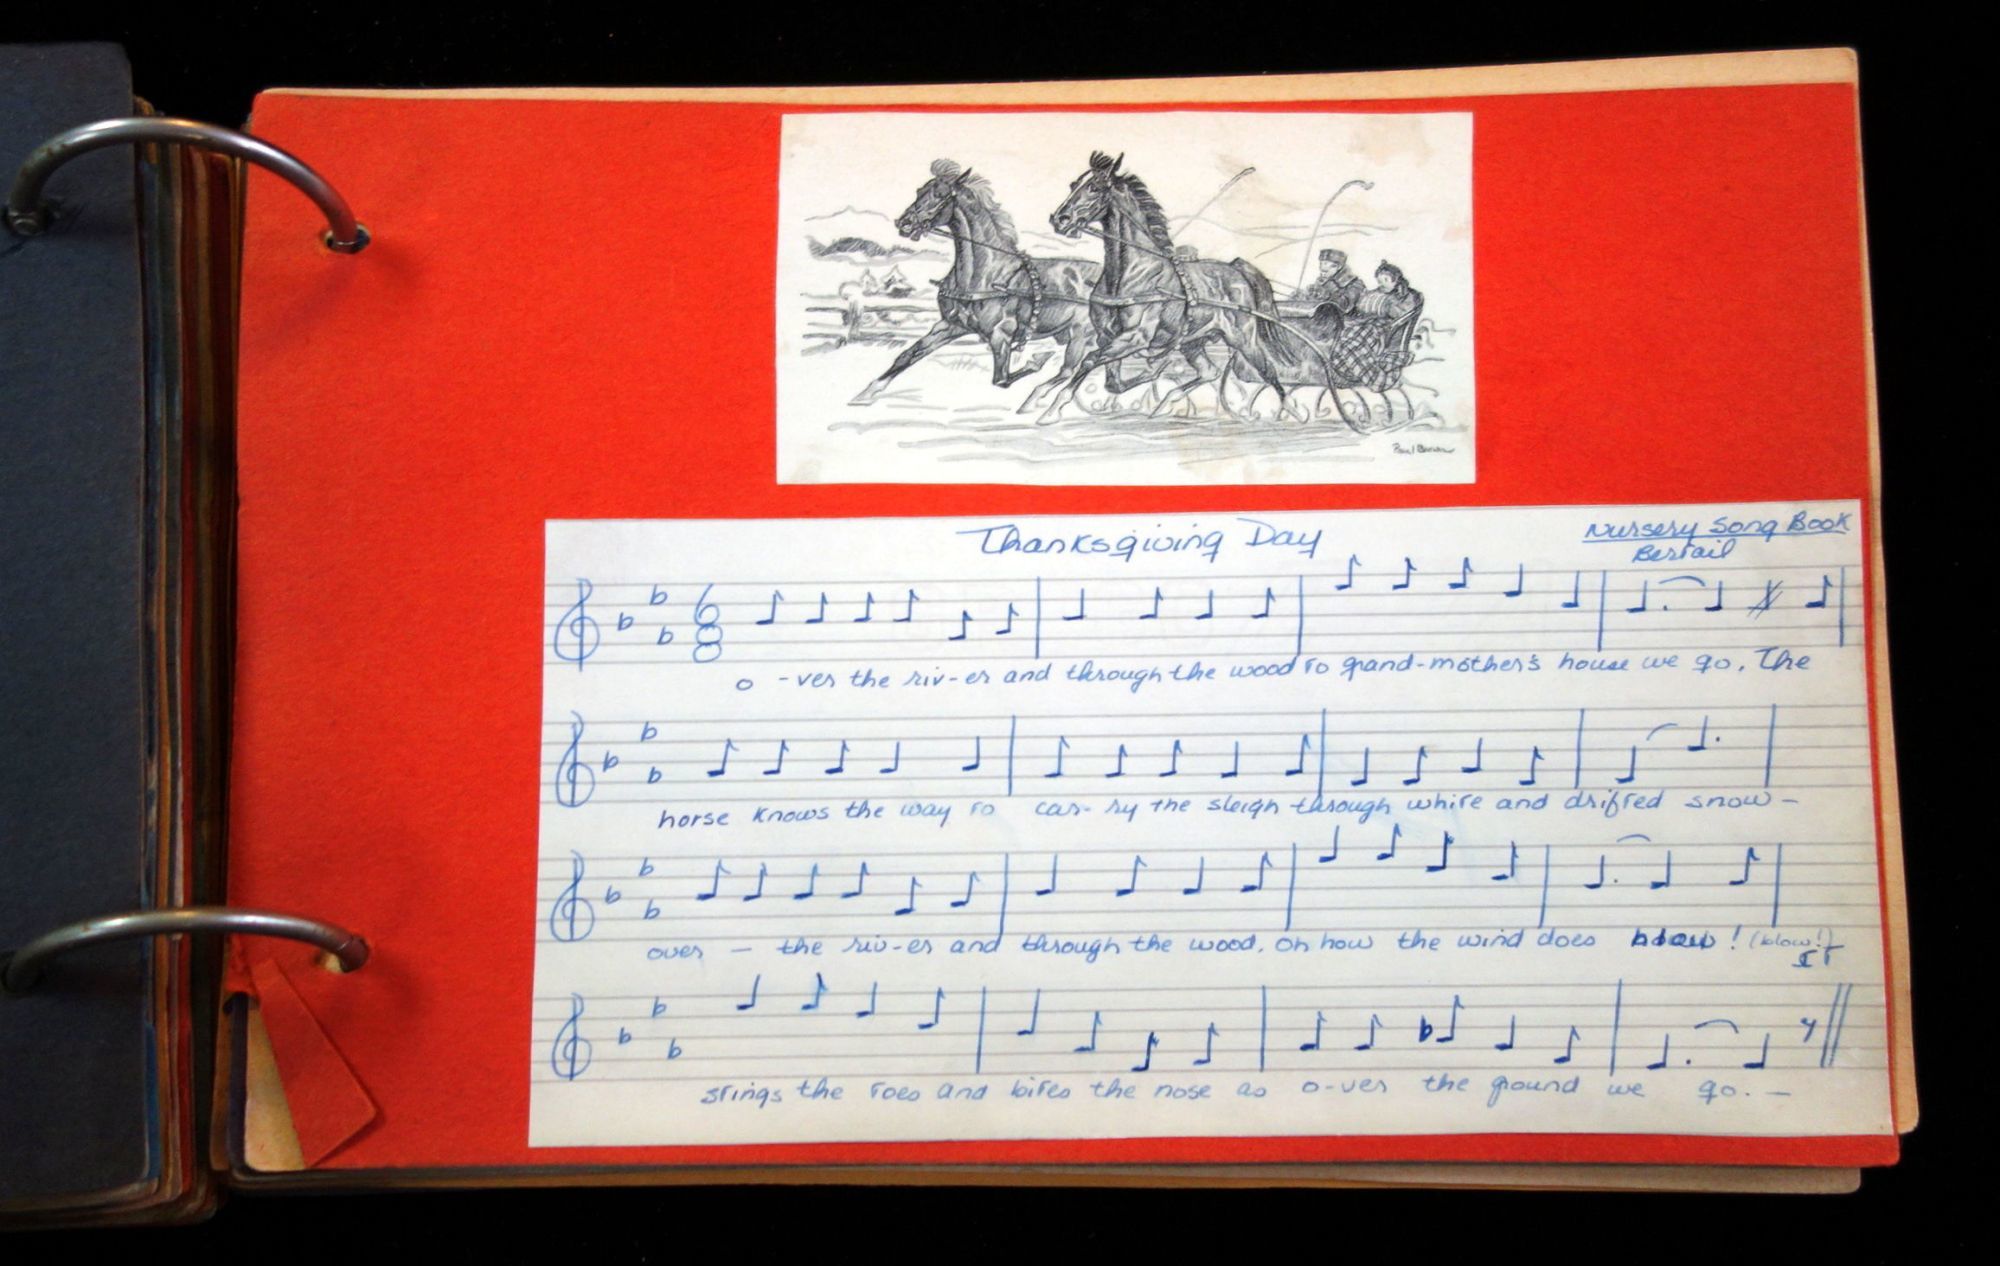 Paul Brown
Thanksgiving Day
Nursery Song Book
Bertail
6
8
o - ver the riv - er and through the wood to grand - mother's house we go. The
horse knows the way to car - ry the sleigh through white and drifted snow -
over - the riv - er and through the wood. Oh how the wind does blow! (blow!)
It
stings the toes and bites the nose as o - ver the ground we go. -